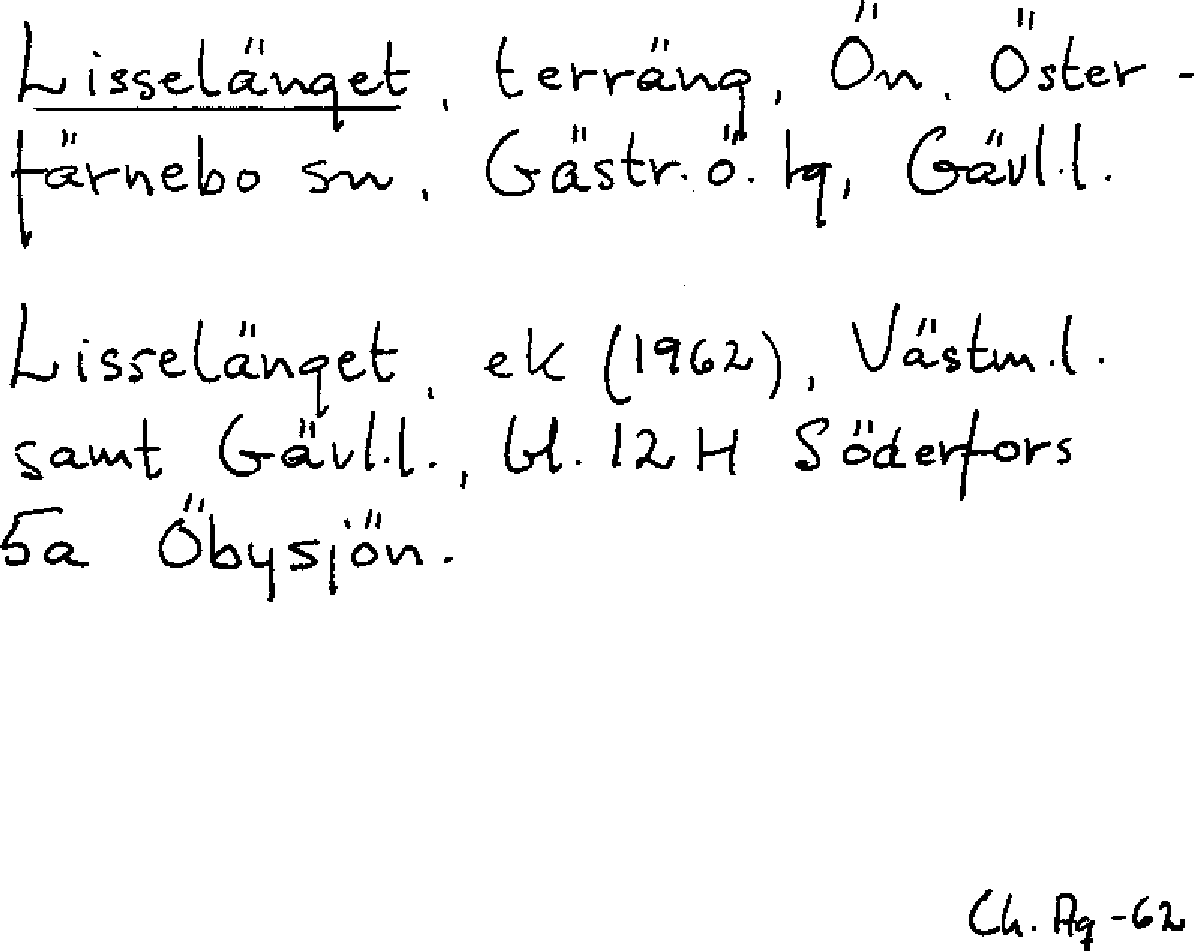 Lisselänget, terräng, Ön, Öster-
färnebo sn, Gästr. ö. tg, Gävl.l.
Lisselänget, ek (1962), Västm.l.
samt Gävl.l., bl. 12 H Söderfors
5a Öbysjön.
Ch. Ag -62